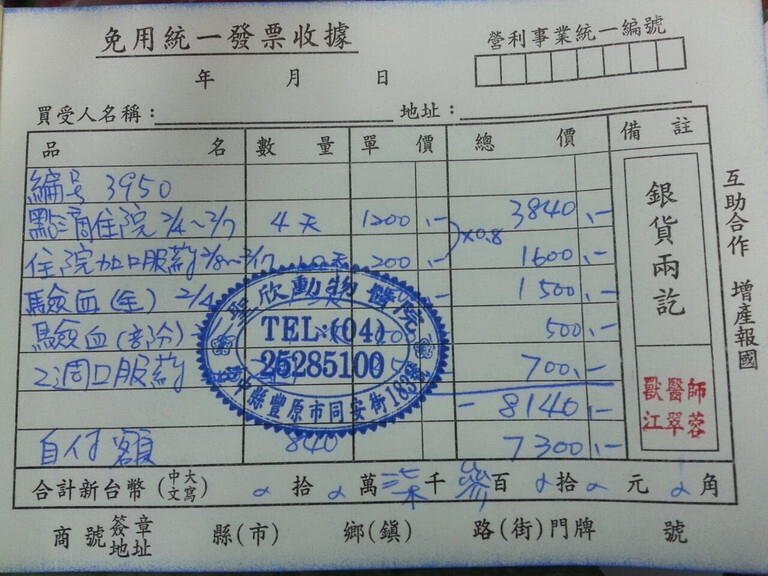 免用統一發票收據
營利事業統一編號
年 月 日
買受人名稱: 地址:
品名 數量 單價 總價 備註
編號 3950
點滴住院 2/4~2/7 4天 1200.- 3840.-
×0.8
住院加口服葯 2/8~2/17 10天 200.- 1600.-
驗血(全) 2/4 1500.-
驗血(部份) 500.-
2週口服葯 700.-
- 8140.-
自付額 840 7300.-
合計新台幣(中文大寫) 拾 萬 柒千 參百 拾 元 角
商號簽章地址 縣(市) 鄉(鎮) 路(街)門牌 號
銀貨兩訖
獸醫師
江翠蓉
互助合作 增產報國
聖欣動物醫院
TEL:(04)
25285100
中縣豐原市同安街183號